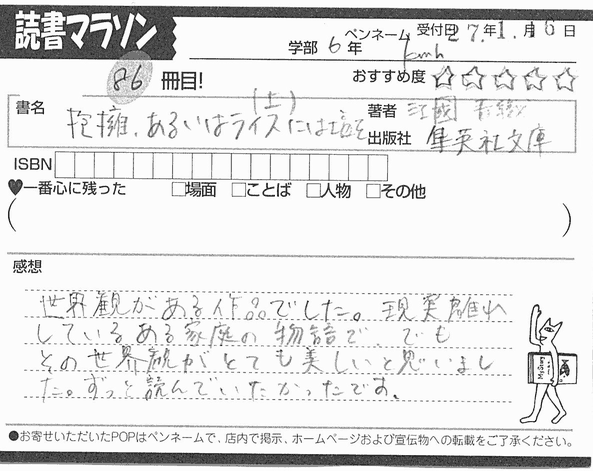 読書マラソン
学部 6年 ペンネーム kmh 受付日 27年1月16日
86 冊目! おすすめ度 ☆☆☆☆☆
書名 抱擁、あるいはライスには塩を (上) 著者 江國 香織
出版社 集英社文庫
ISBN
♥一番心に残った □場面 □ことば □人物 □その他
( )
感想
世界観がある作品でした。現実離れ
しているある家庭の物語で、でも
その世界観がとても美しいと思いまし
た。ずっと読んでいたかったです。
●お寄せいただいたPOPはペンネームで、店内で掲示、ホームページおよび宣伝物への転載をご了承ください。